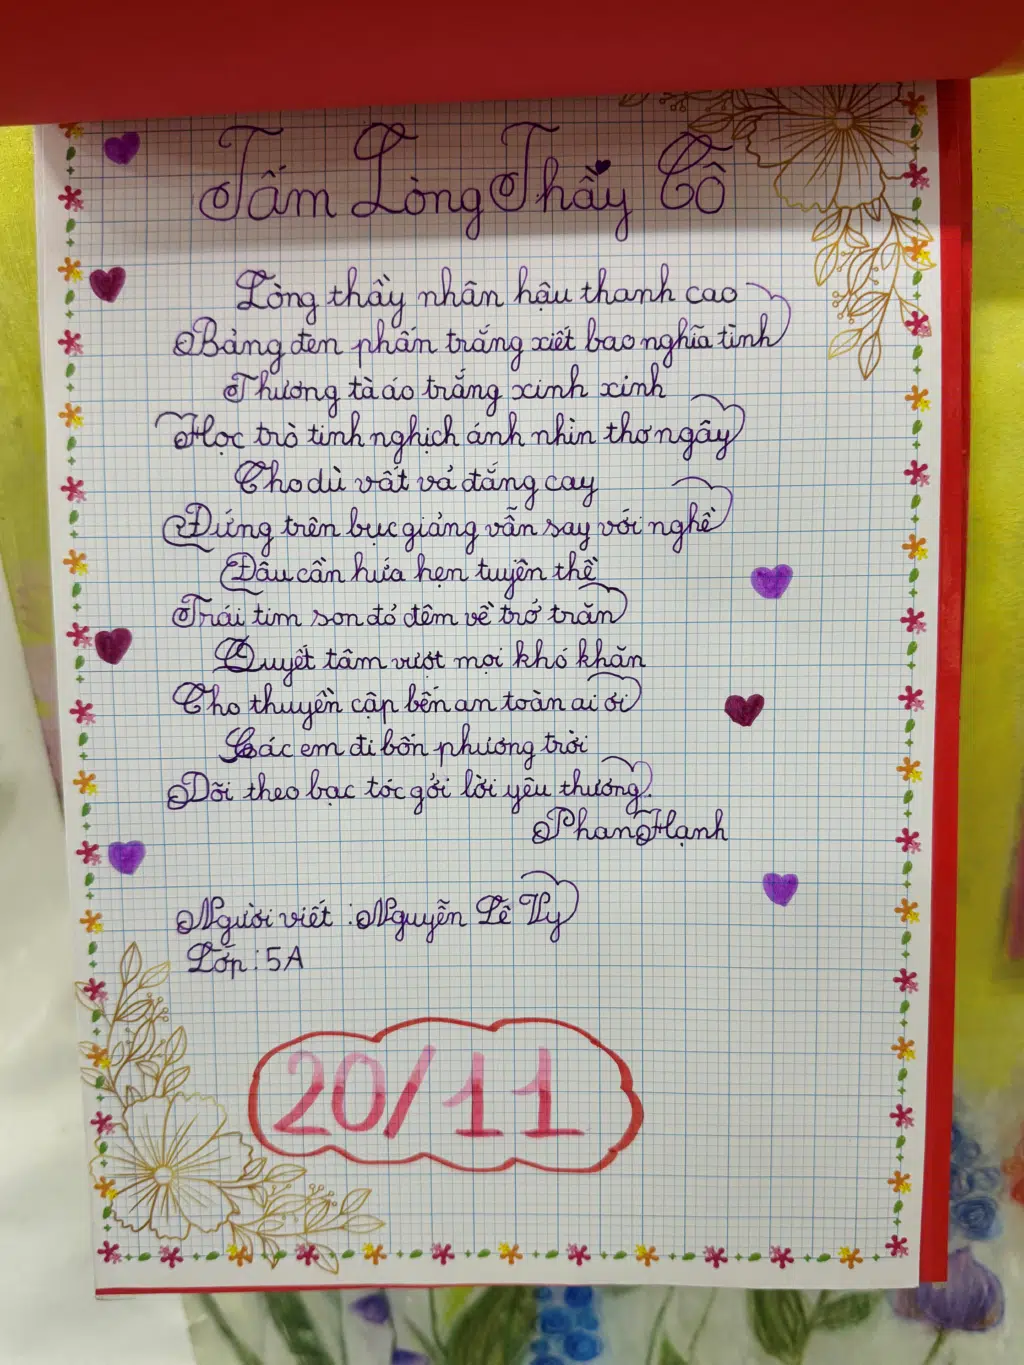 Tấm Lòng Thầy Cô
Lòng thầy nhân hậu thanh cao
Bảng đen phấn trắng xiết bao nghĩa tình
Thương tà áo trắng xinh xinh
Học trò tinh nghịch ánh nhìn thơ ngây
Cho dù vất vả đắng cay
Đứng trên bục giảng vẫn say với nghề
Đâu cần hứa hẹn tuyên thề
Trái tim son đỏ đêm về trở trăn
Quyết tâm vượt mọi khó khăn
Cho thuyền cập bến an toàn ai ơi
Các em đi bốn phương trời
Dõi theo bạc tóc gởi lời yêu thương.
Phan Hạnh
Người viết : Nguyễn Lê Vy
Lớp : 5A
20/11